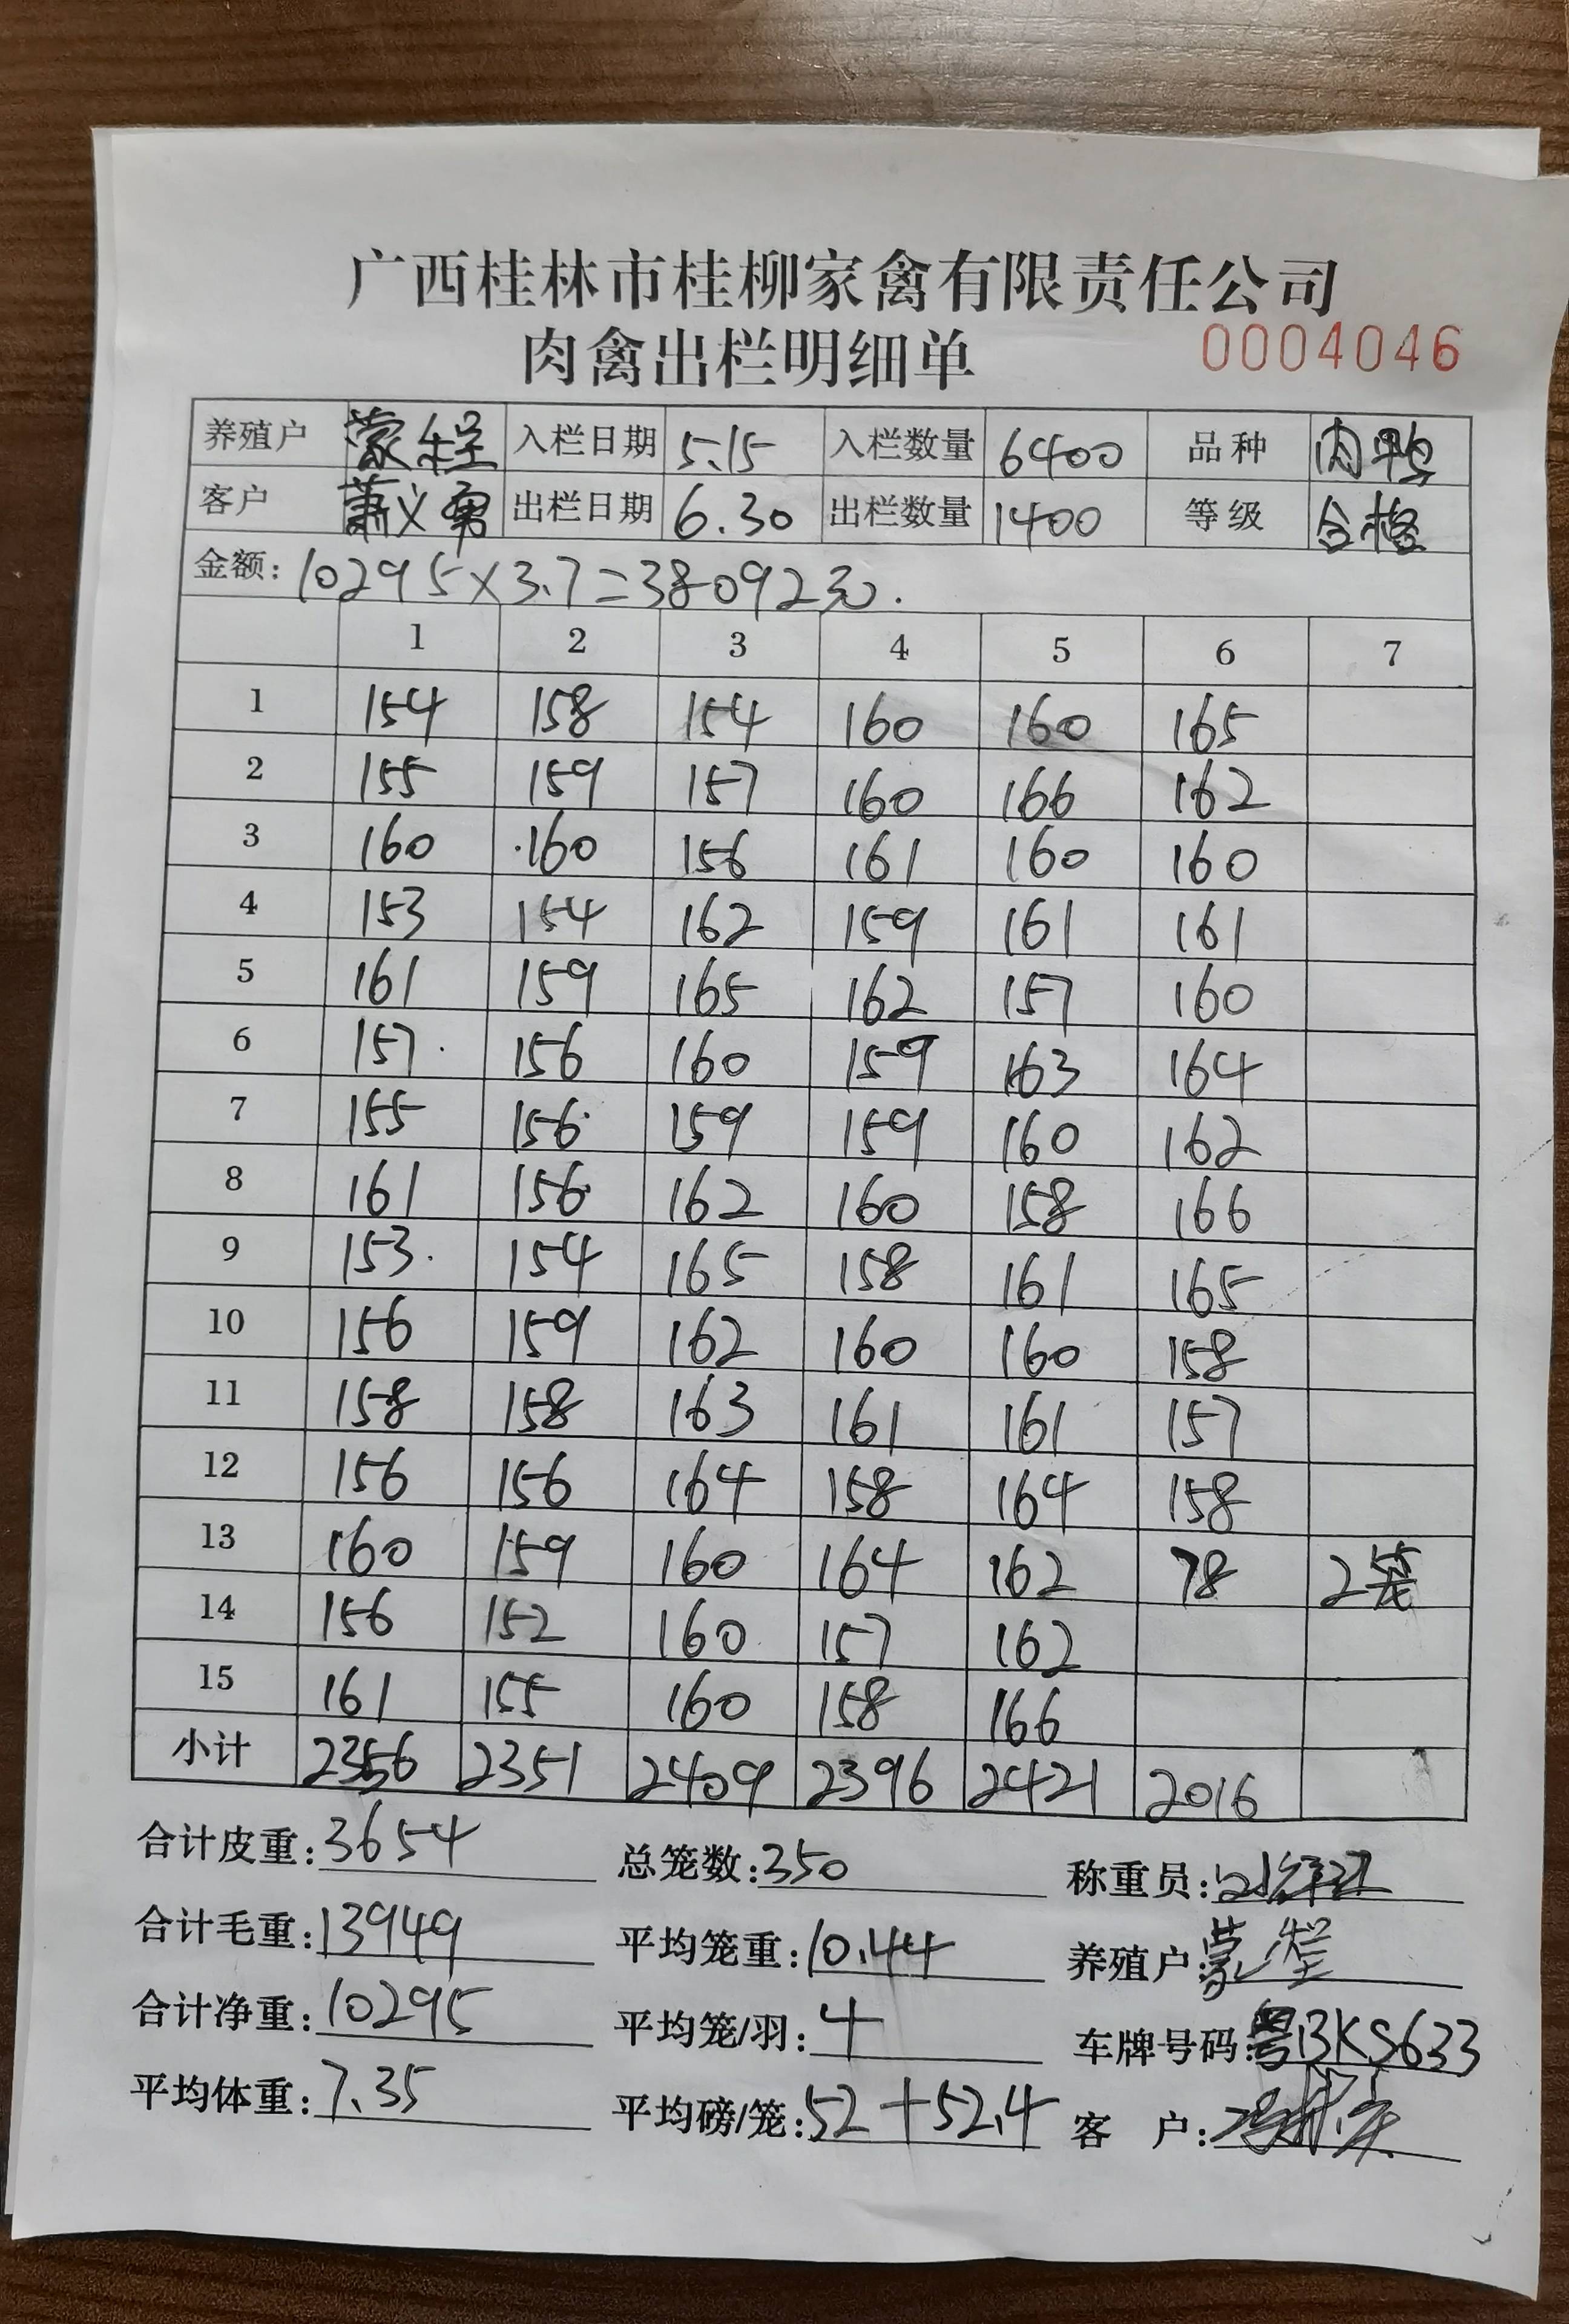 广西桂林市桂柳家禽有限责任公司
肉禽出栏明细单 0004046
养殖户 蒙 入栏日期 5.15 入栏数量 6400 品种 肉鸭
客户 萧义勇 出栏日期 6.30 出栏数量 1400 等级 合格
金额: 10295×3.7=38092元.
1 2 3 4 5 6 7
1 154 158 154 160 160 165
2 155 159 157 160 166 162
3 160 160 156 161 160 160
4 153 154 162 159 161 161
5 161 159 165 162 157 160
6 157 156 160 159 163 164
7 155 156 159 159 160 162
8 161 156 162 160 158 166
9 153 154 165 158 161 165
10 156 159 162 160 160 158
11 158 158 163 161 161 157
12 156 156 164 158 164 158
13 160 159 160 164 162 78 2笼
14 156 152 160 157 162
15 161 155 160 158 166
小计 2356 2351 2409 2396 2421 2016
合计皮重: 3654 总笼数: 350 称重员:
合计毛重: 13949 平均笼重: 10.44 养殖户: 蒙
合计净重: 10295 平均笼/羽: 4 车牌号码: 粤BKS633
平均体重: 7.35 平均磅/笼: 52+52.4 客 户: